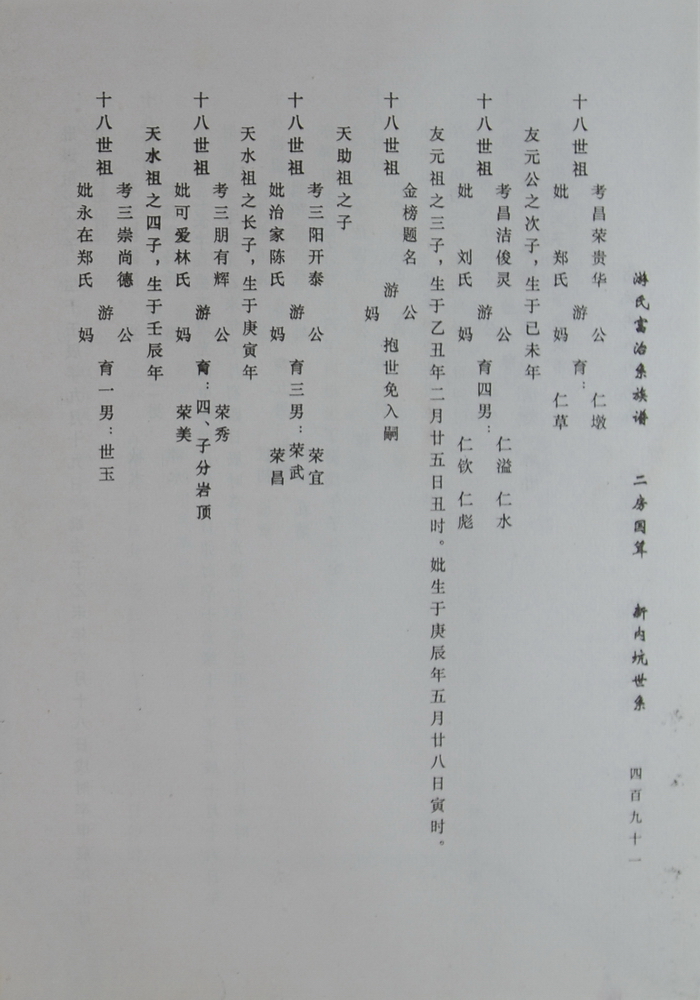 游氏富治系族谱 二房国茸 新内坑世系 四百九十一
十八世祖
考昌荣贵华
妣 郑氏
游
公
妈
育：
仁墩
仁草
友元公之次子，生于已未年
十八世祖
考昌洁俊灵
妣 刘氏
游
公
妈
育四男：
仁溢 仁水
仁钦 仁彪
友元祖之三子，生于乙丑年二月廿五日丑时。妣生于庚辰年五月廿八日寅时。
十八世祖
金榜题名
游
公
妈
抱世免入嗣
天助祖之子
十八世祖
考三阳开泰
妣治家陈氏
游
公
妈
育三男：
荣宜
荣武
荣昌
天水祖之长子，生于庚寅年
十八世祖
考三朋有辉
妣可爱林氏
游
公
妈
育：四、子分岩顶
荣秀
荣美
天水祖之四子，生于壬辰年
十八世祖
考三崇尚德
妣永在郑氏
游
公
妈
育一男：世玉